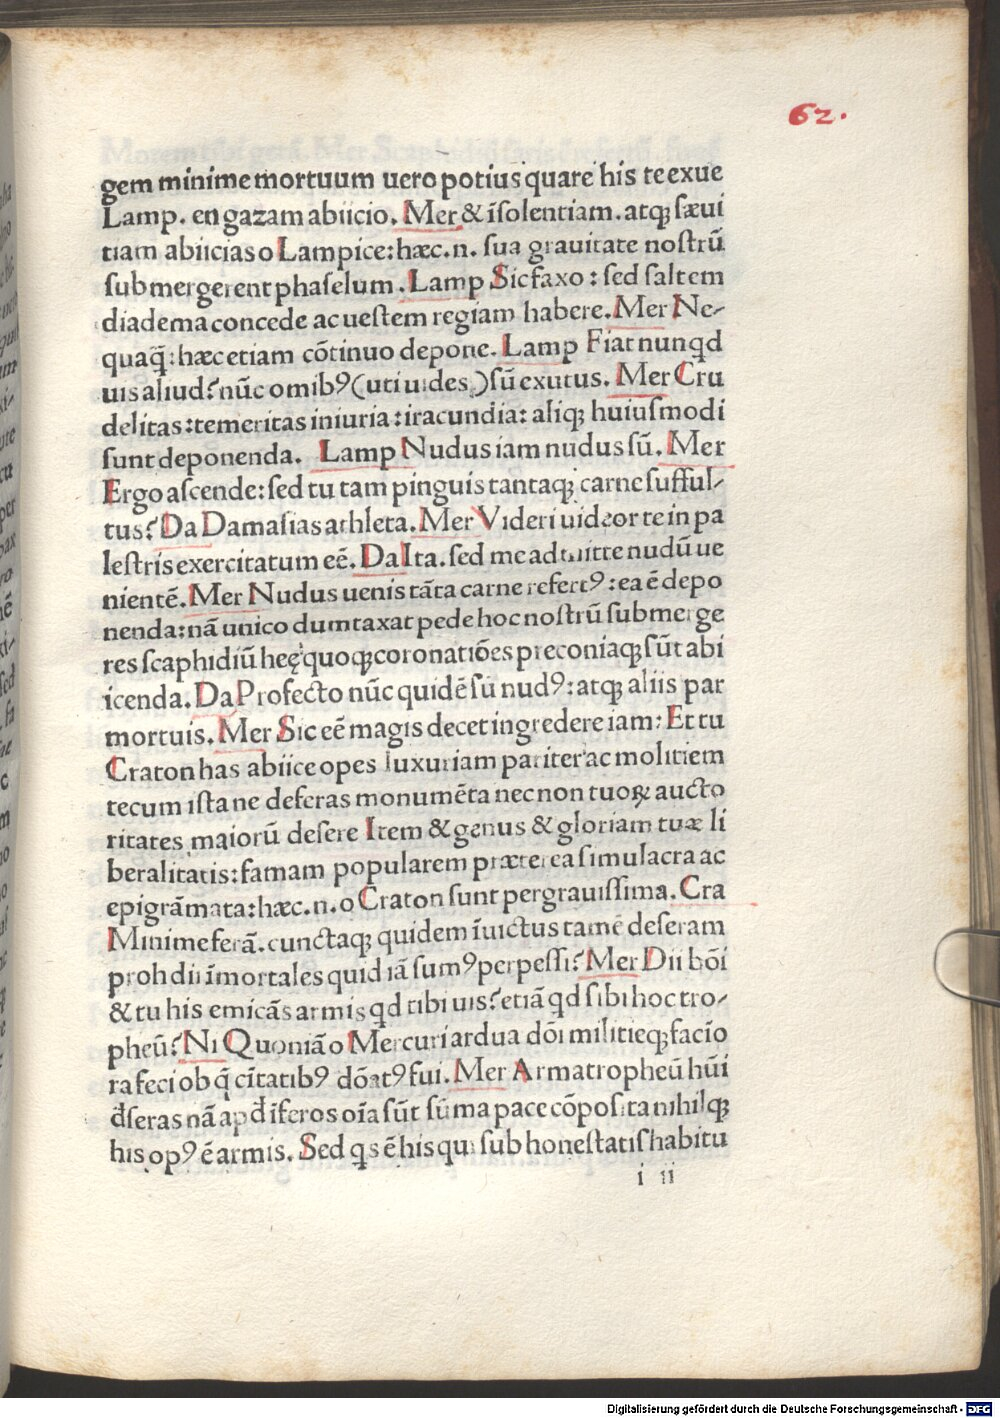 62.
gem minime mortuum uero potius quare his te exue
Lamp. en gazam abiicio. Mer & ĩsolentiam. atqꝫ sæui
tiam abiicias o Lampice: hæc .n. sua grauitate nostrũ
submergerent phaselum. Lamp Sic faxo: sed saltem
diadema concede ac uestem regiam habere. Mer Ne⸗
quaq̃: hæc etiam cõtinuo depone. Lamp Fiat nunqd
uis aliud? nũc omibꝰ (uti uides) sũ exutus. Mer Cru
delitas: temeritas iniuria: iracundia: aliqꝫ huiusmodi
sunt deponenda. Lamp Nudus iam nudus sũ. Mer
Ergo ascende: sed tu tam pinguis tantaqꝫ carne sufful⸗
tus? Da Damasias athleta. Mer Videri uideor te in pa
lestris exercitatum eẽ. Da Ita. sed me admitte nudũ ue
nientẽ. Mer Nudus uenis tãta carne refertꝰ: ea ẽ depo
nenda: nã unico dumtaxat pede hoc nostrũ submerge
res scaphidiũ heę quoqꝫ coronatiões preconiaqꝫ sũt abi
icenda. Da Profecto nũc quidẽ sũ nudꝰ: atqꝫ aliis par
mortuis. Mer Sic eẽ magis decet ingredere iam: Et tu
Craton has abiice opes luxuriam pariter ac molitiem
tecum ista ne deferas monumẽta nec non tuoꝝ aucto
ritates maiorũ desere Item & genus & gloriam tuæ li
beralitatis: famam popularem præterea simulacra ac
epigrãmata: hæc .n. o Craton sunt pergrauissima. Cra
Minime ferã. cunctaqꝫ quidem ĩuictus tamẽ deseram
proh dii ĩmortales quid iã sumꝰ perpessi? Mer Dii bõi
& tu his emicãs armis qd tibi uis? etiã qd sibi hoc tro⸗
pheũ? Ni Quoniã o Mercuri ardua dõi militieqꝫ facĩo
ra feci ob q̃ cĩtatibꝰ dõatꝰ fui. Mer Arma tropheũ hũi
đseras nã apđ iferos oĩa sũt sũma pace cõposita nihilqꝫ
his opꝰ ẽ armis. Sed qs ẽ his qui sub honestatis habitu
i ii
Digitalisierung gefördert durch die Deutsche Forschungsgemeinschaft - DFG